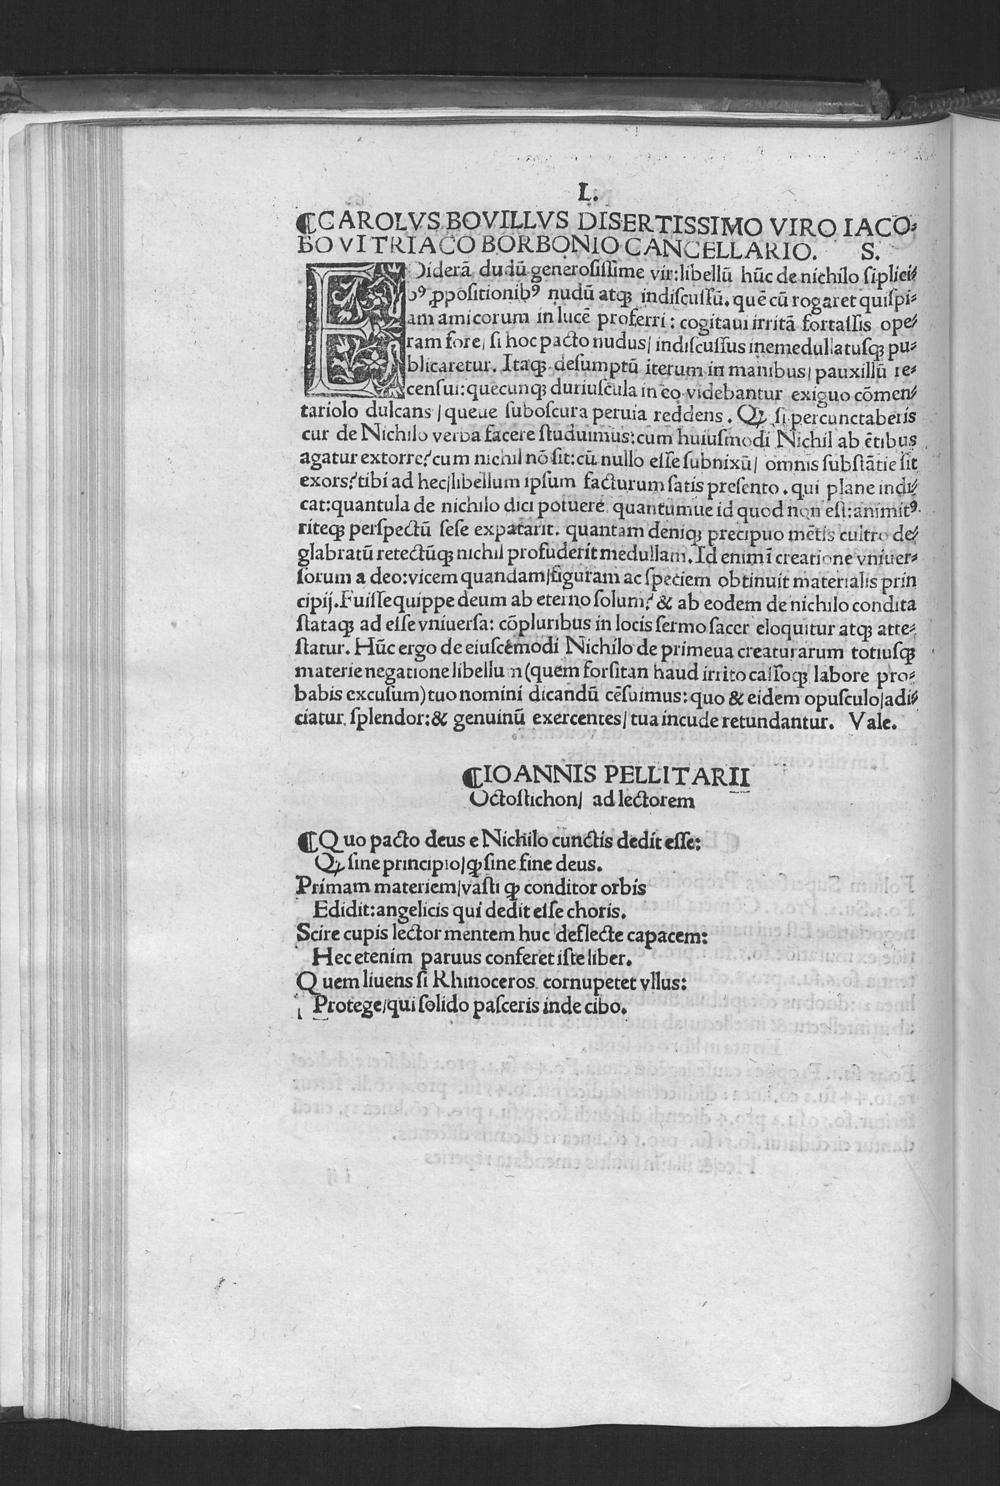 L.
¶CAROLVS BOVILLVS DISERTISSIMO VIRO IACO-
BO VITRIACO BORBONIO CANCELLARIO. S.
EDiderā dudū generosissime vir:libellū hūc de nichilo siplici
bꝰ ꝓpositionibꝰ nudū atqꝫ indiscussū. quē cū rogaret quispi-
am amicorum in lucē proferri: cogitaui irritā fortassis ope/
ram fore/ si hoc pacto nudus/ indiscussus inemedullatusqꝫ pu-
blicaretur. Itaqꝫ desumptū iterum in manibus/ pauxillū re-
censui: quecunqꝫ duriuscula in eo videbantur exiguo cōmen/
tariolo dulcans/ queue suboscura peruia reddens. Qꝫ si percunctaberis
cur de Nichilo verba facere studuimus: cum huiusmodi Nichil ab ētibus
agatur extorre? cum nichil nō sit: cū nullo esse subnixū/ omnis substātie sit
exors? tibi ad hec/libellum ipsum facturum satis presento. qui plane indi/
cat: quantula de nichilo dici potuere. quantumue id quod non est: animitꝰ
riteqꝫ perspectū sese expatarit. quantam deniqꝫ precipuo mētis cultro de/
glabratū retectūqꝫ nichil profuderit medullam. Id enim ī creatione vniuer-
sorum a deo: vicem quandam/figuram ac speciem obtinuit materialis prin
cipij. Fuisse quippe deum ab eterno solum? & ab eodem de nichilo condita
stataqꝫ ad esse vniuersa: cōpluribus in locis sermo sacer eloquitur atqꝫ atte-
statur. Hūc ergo de eiuscemodi Nichilo de primeua creaturarum totiusqꝫ
materie negatione libellum (quem forsitan haud irrito cassoqꝫ labore pro-
babis excusum) tuo nomini dicandū cēsuimus: quo & eidem opusculo/adi/
ciatur splendor: & genuinū exercentes/ tua incude retundantur. Vale.
¶IOANNIS PELLITARII
Octostichon/ ad lectorem
¶Quo pacto deus e Nichilo cunctis dedit esse:
Qꝫ sine principio/qꝫ sine fine deus.
Primam materiem/vasti qꝫ conditor orbis
Edidit: angelicis qui dedit esse choris.
Scire cupis lector mentem huc deflecte capacem:
Hec etenim paruus conferet iste liber.
Quem liuens si Rhinoceros cornupetet vllus:
Protege/qui solido pasceris inde cibo.